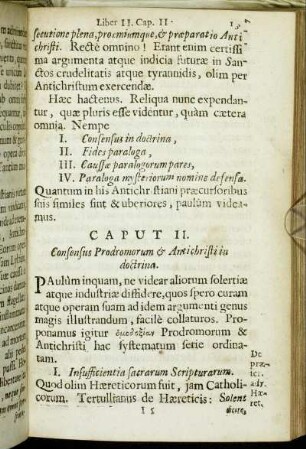 Liber II. Cap. II.
secutione plena, procemiumque, & præparatio Anti
christi. Rectè omnino! Erant enim certissi
ma argumenta atque indicia futuræ in San-
ctos crudelitatis atque tyrannidis, olim per
Antichristum exercendæ.
Hæc hactenus. Reliqua nunc expendan-
tur, quæ pluris esse videntur, quàm cætera
omnia. Nempe
I. Consensus in doctrina,
II. Fides paraloga,
III. Caussæ paralogorum pares,
IV. Paraloga mysteriorum nomine defensa.
Quantum in his Antichr stiani præcursoribus
suis similes sint & uberiores, paulùm videa-
mus.
CAPUT II.
Consonsus Prodromorum & Antichristi in
doctrina.
PAulùm inquam, ne videar aliorum solertiæ
atque industriæ diffidere, quos spero curam
atque operam suam ad idem argumenti genus
magis illustrandum, facilè collaturos. Pro-
ponamus igitur ὁμοδοξίαν Prodromorum &
Antichristi hac systematum serie ordina-
tam.
I. Insufficientia sacrarum Scripturarum.
Quod olim Hæreticorum fuit, jam Catholi-
corum. Tertullianus de Hæreticis: Solent
De
præ-
adv.
Hæ-
ret.
I 5
dicere,